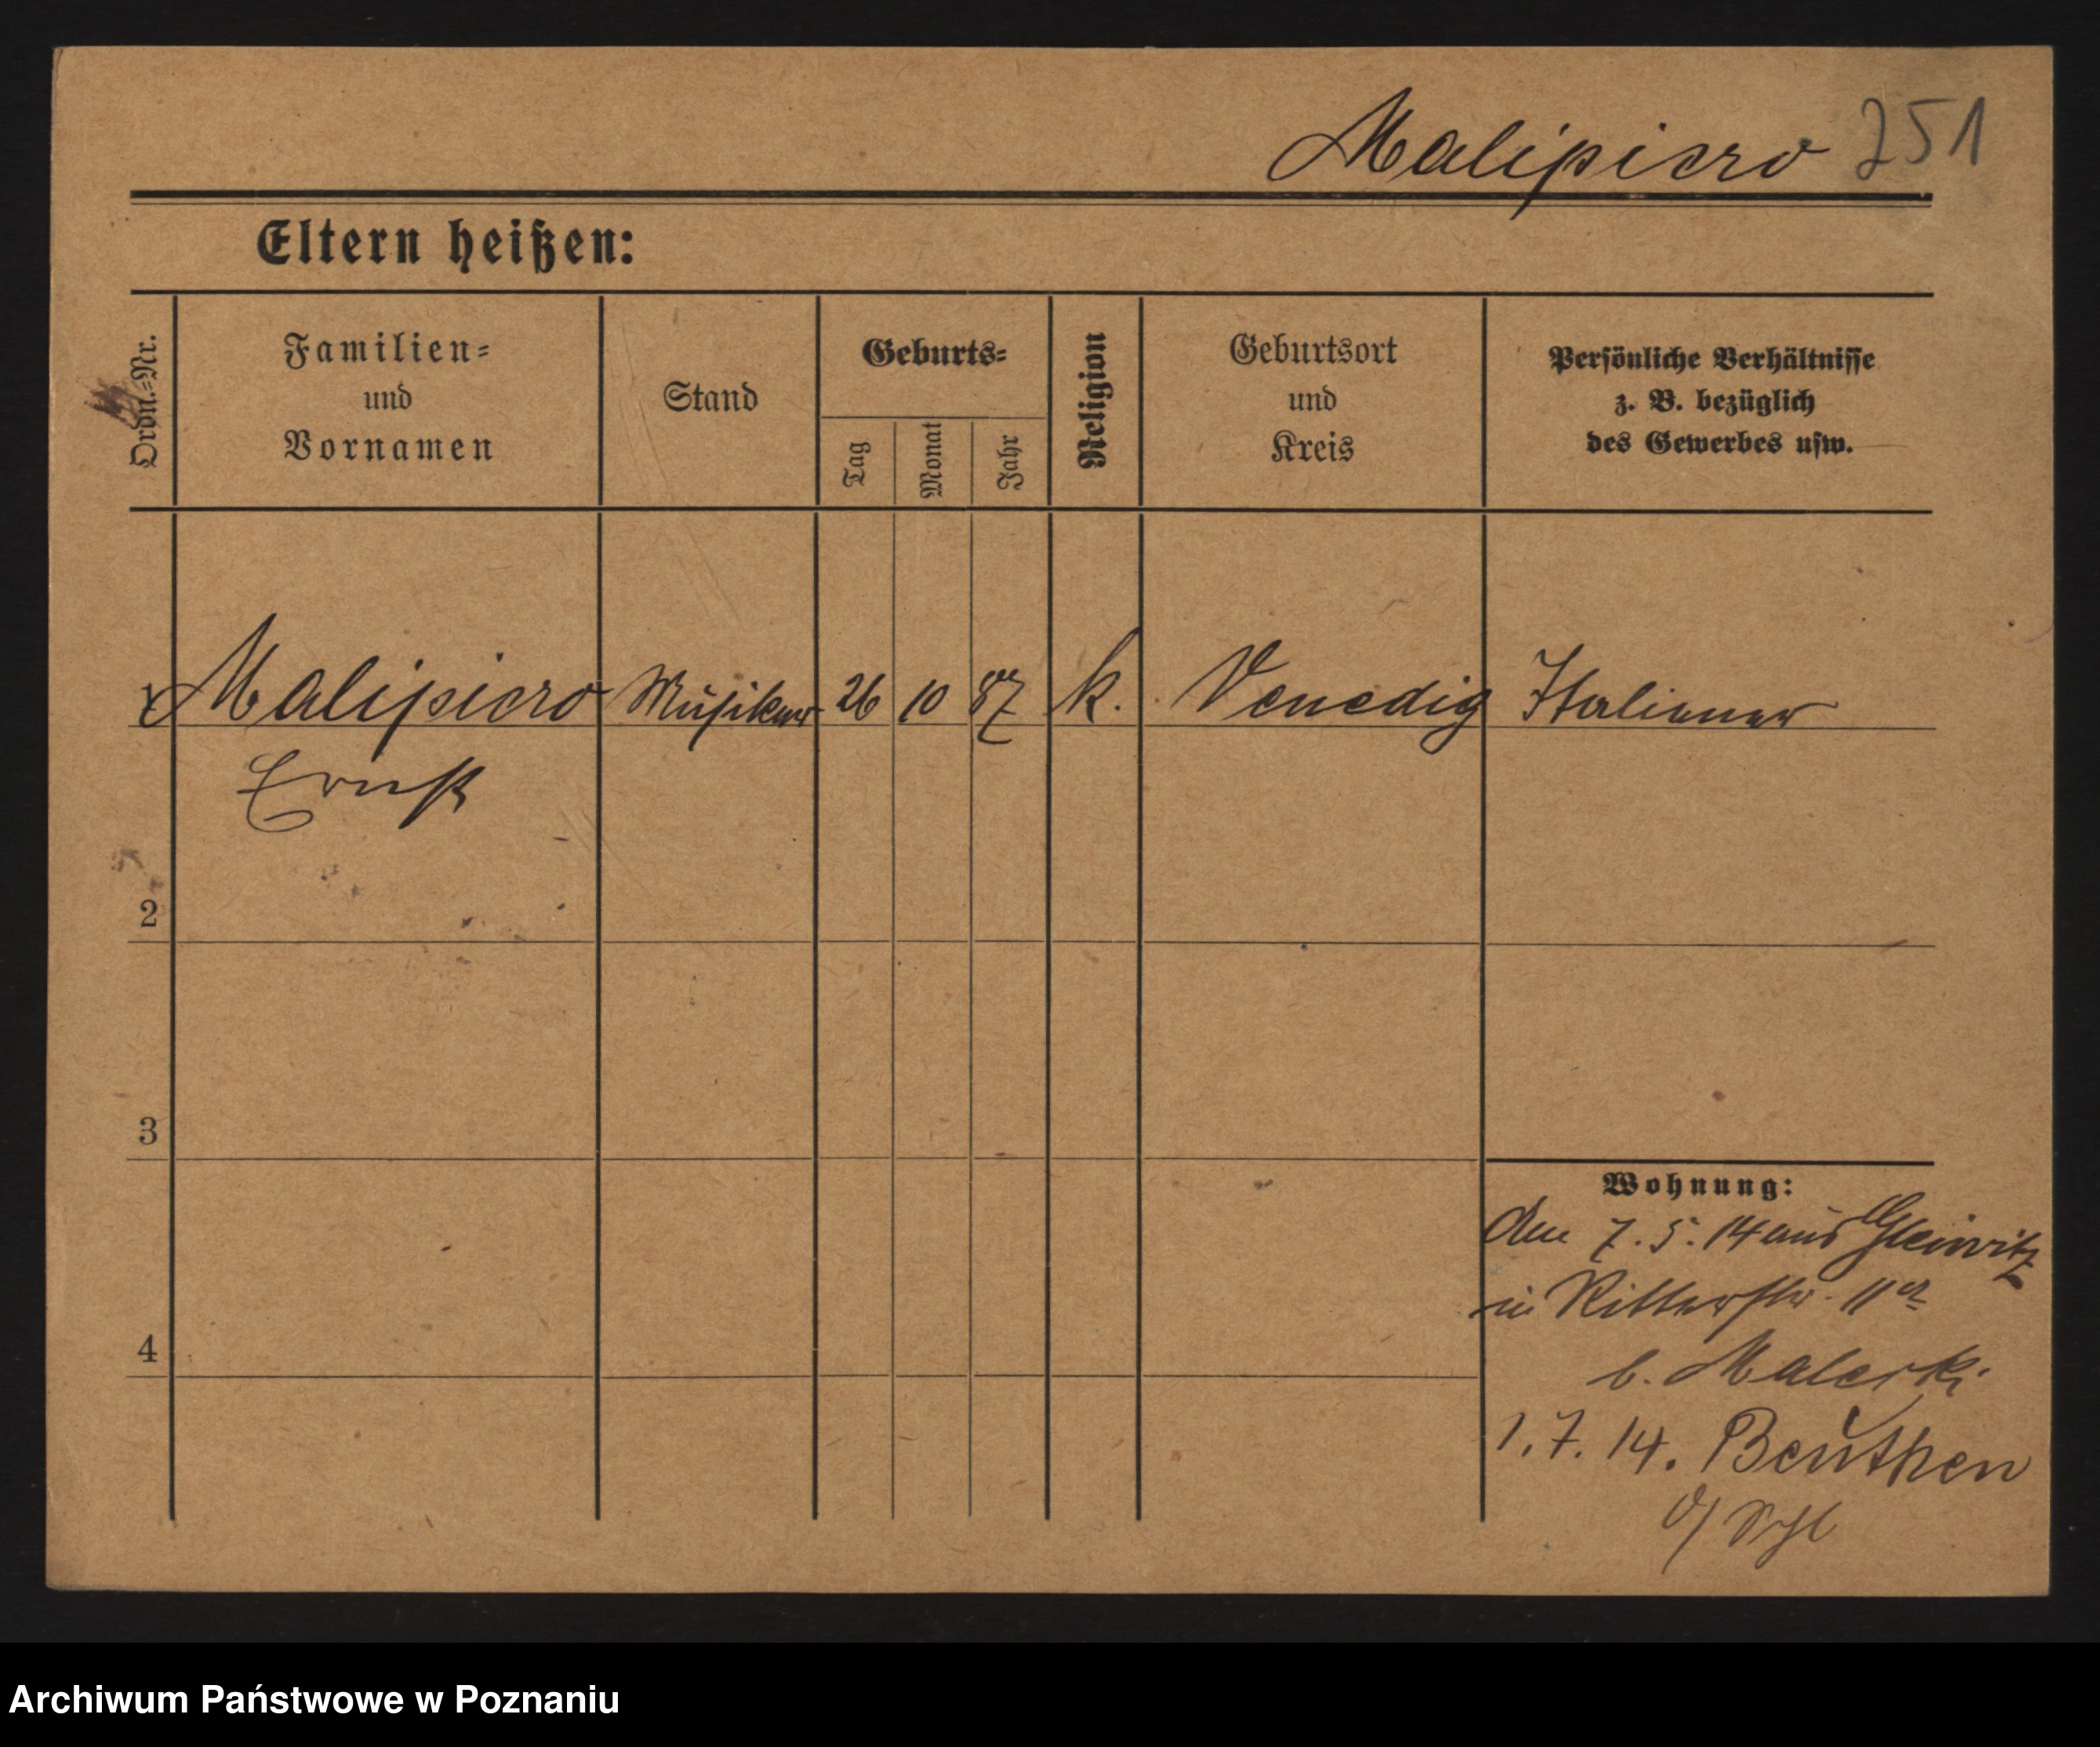 Malipiero 251
Eltern heißen:
Ordn.-Nr.
Familien-
und
Vornamen
Stand
Geburts-
Tag
Monat
Jahr
Religion
Geburtsort
und
Kreis
Persönliche Verhältnisse
z. B. bezüglich
des Gewerbes usw.
1 Malipiero Musiker 26 10 87 k. Venedig Italiener
Ernst
2
3
4
Wohnung:
den 7. 5. 14 aus Gleiwitz
in Ritterstr. 11a
b. Malerki
1. 7. 14. Beuthen
O/Schl
Archiwum Państwowe w Poznaniu